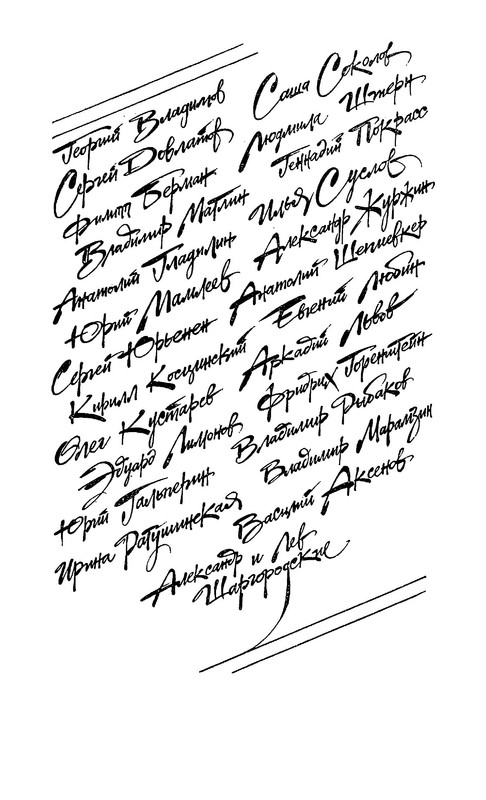 Георгий Владимов
Сергей Довлатов
Филипп Берман
Владимир Матлин
Анатолий Гладилин
Юрий Мамлеев
Сергей Юрьенен
Кирилл Косцинский
Олег Кустарев
Эдуард Лимонов
Юрий Гальперин
Ирина Ратушинская
Саша Соколов
Людмила Штерн
Геннадий Покрасс
Илья Суслов
Александр Журжин
Анатолий Шепиевкер
Евгений Любин
Аркадий Львов
Фридрих Горенштейн
Владимир Рыбаков
Владимир Марамзин
Василий Аксенов
Александр и Лев
Шаргородские